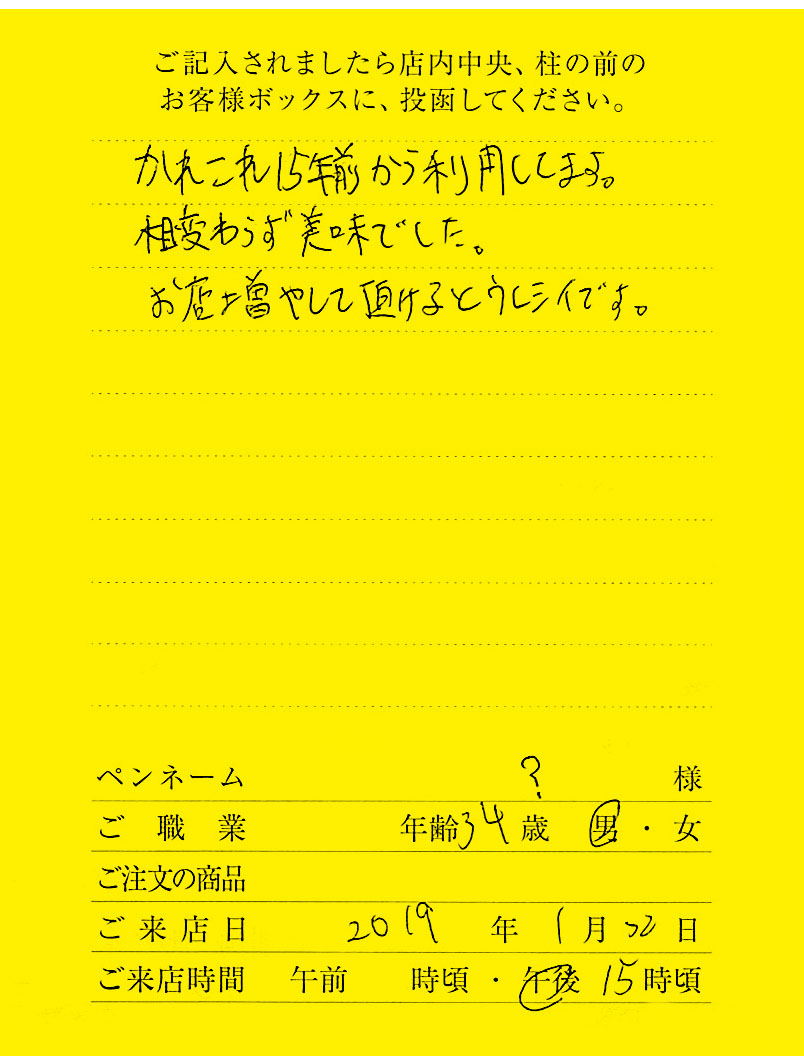 ご記入されましたら店内中央、柱の前の
お客様ボックスに、投函してください。
かれこれ15年前から利用してます。
相変わらず美味でした。
お店増やして頂けるとウレシイです。
ペンネーム ? 様
ご職業 年齢34歳 男・女
ご注文の商品
ご来店日 2019年1月22日
ご来店時間 午前 時頃・午後15時頃